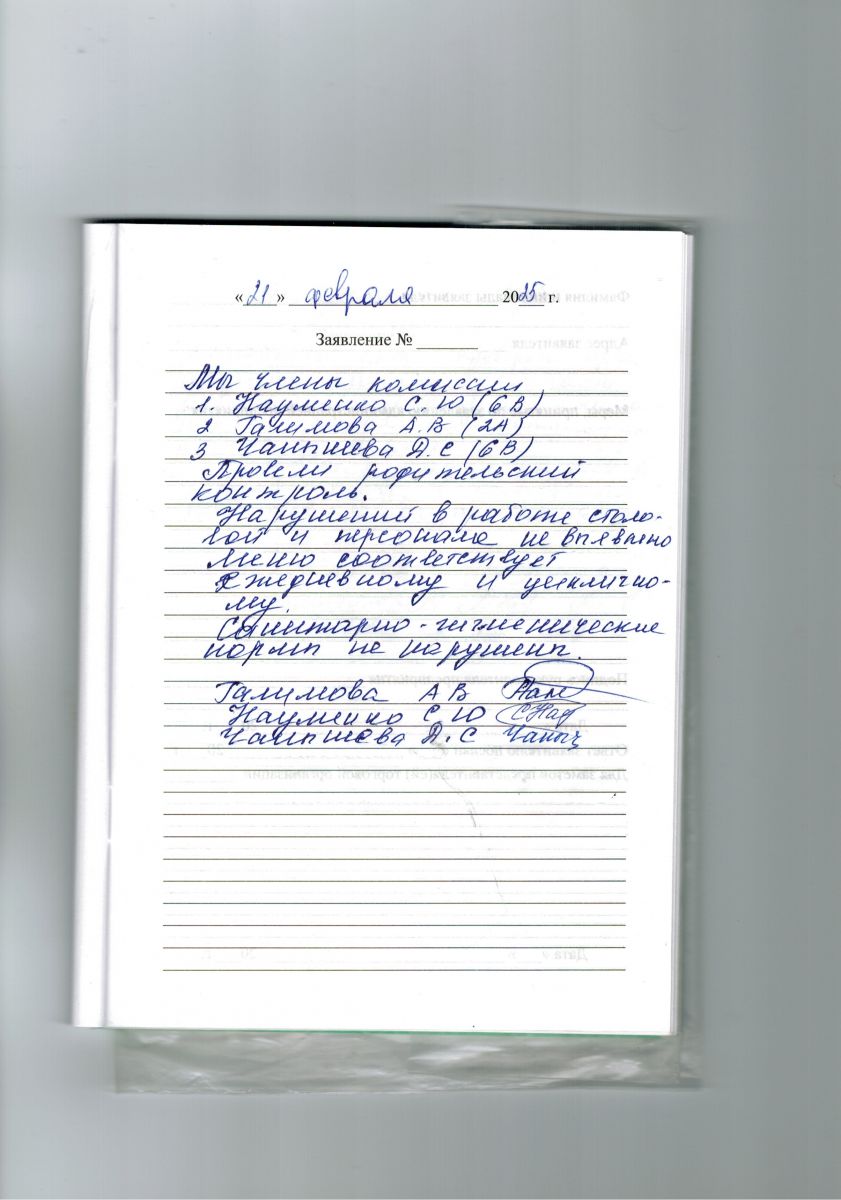 «21» февраля 2025 г.
Заявление № ______
Мы члены комиссии
1. Науменко С.Ю (6В)
2 Галимова А.В (2А)
3 Чанышева Д.С (6В)
Провели родительский
контроль.
Нарушений в работе столо-
вой и персонала не выявлено
Меню соответствует
ежедневному и циклично-
му.
Санитарно-гигиенические
нормы не нарушены.
Галимова А В
Науменко С Ю
Чанышева Д.С Чаныш